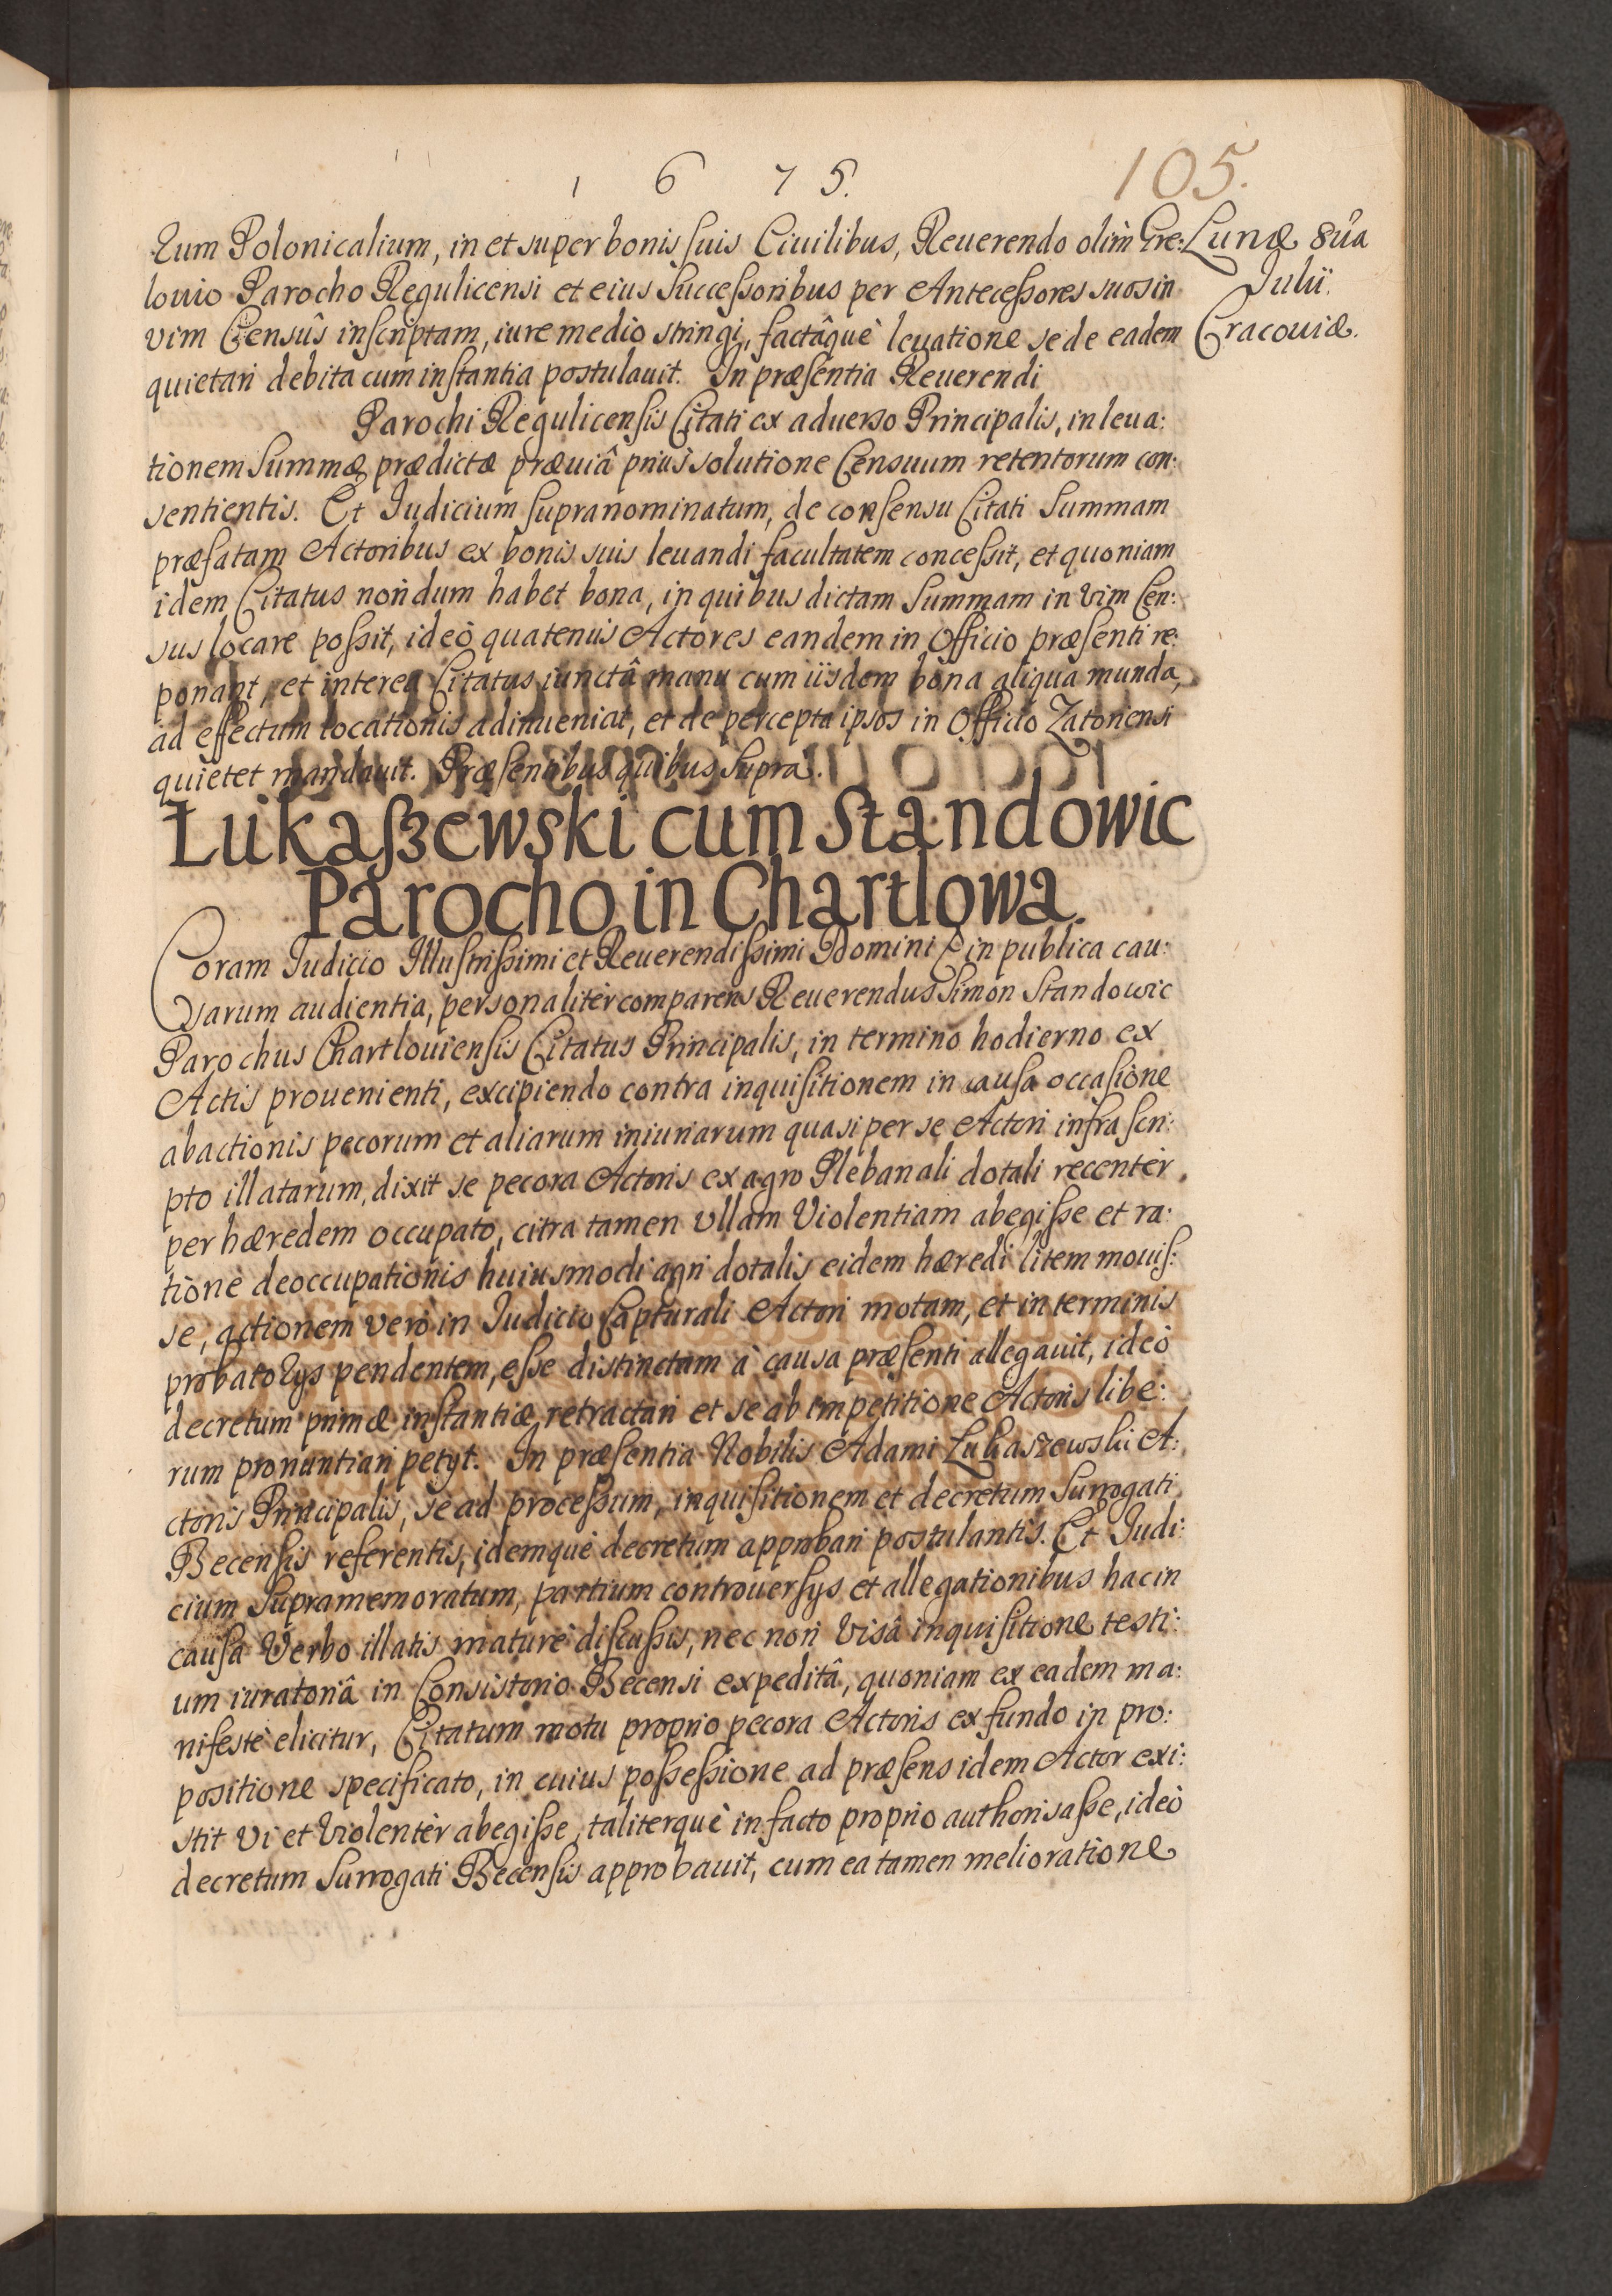 1 6 7 5.
105.
Lunæ 8ua
Julii.
Cracoviæ.
rum Polonicalium, in et super bonis suis Ciuilibus, Reuerendo olim Gre:
louio Parocho Regulicensi et eius Successoribus per Antecessores suos in
vim Censûs inscriptam, iure medio stringi, factâquè leuatione se de eadem
quietari debita cum instantia postulauit. In præsentia Reuerendi
Parochi Regulicensis Citati ex aduerso Principalis, in leua:
tionem Summæ prædictæ præuiâ prius solutione Censuum retentorum con:
sentientis. Et Judicium supranominatum, de consensu Citati Summam
præfatam Actoribus ex bonis suis leuandi facultatem concessit, et quoniam
idem Citatus nondum habet bona, in quibus dictam Summam in vim Cen:
sus locare possit, ideò quatenus Actores eandem in Officio præsenti re:
ponant, et interea Citatus iunctâ manu cum iisdem bona aliqua munda,
ad effectum locationis adinueniat, et de percepta ipsos in Officio Zatoriensi
quietet mandauit. Præsentibus quibus supra.
Łukaszewski cum Standowic
Parocho in Chartlowa.
Coram Judicio Illustrissimi et Reuerendissimi Domini in publica cau:
sarum audientia, personalitèr comparens Reuerendus Simon Standowic
Parochus Chartlouiensis Citatus Principalis, in termino hodierno ex
Actis prouenienti, excipiendo contra inquisitionem in causa occasione
abactionis pecorum et aliarum iniuriarum quasi per se Actori infrascri:
pto illatarum, dixit se pecora Actoris ex agro Plebanali dotali recentèr
per hæredem occupato, citra tamen vllam Violentiam abegisse et ra:
tione deoccupationis huiusmodi agri dotalis eidem hæredi litem mouis:
se, actionem verò in Judicio Capturali Actori motam, et in terminis
probatorys pendentem, esse distinctam à causa præsenti allegauit, ideò
decretum primæ instantiæ retractari et se ab impetitione Actoris libe:
rum pronuntiari petyt. In præsentia Nobilis Adami Łukaszewski A:
ctoris Principalis, se ad processum, inquisitionem et decretum Surrogati
Becensis referentis, idemquè decretum approbari postulantis. Et Judi:
cium Supramemoratum, partium controuersys et allegationibus hac in
causa Verbo illatis maturè discussis, nec non visâ inquisitione testi:
um iuratoriâ in Consistorio Becensi expeditâ, quoniam ex eadem ma:
nifestè elicitur, Citatum motu proprio pecora Actoris ex fundo in pro:
positione specificato, in cuius possessione ad præsens idem Actor exi:
stit vi et violentèr abegisse, taliterquè in facto proprio authorisasse, ideò
decretum Surrogati Becensis approbauit, cum ea tamen melioratione